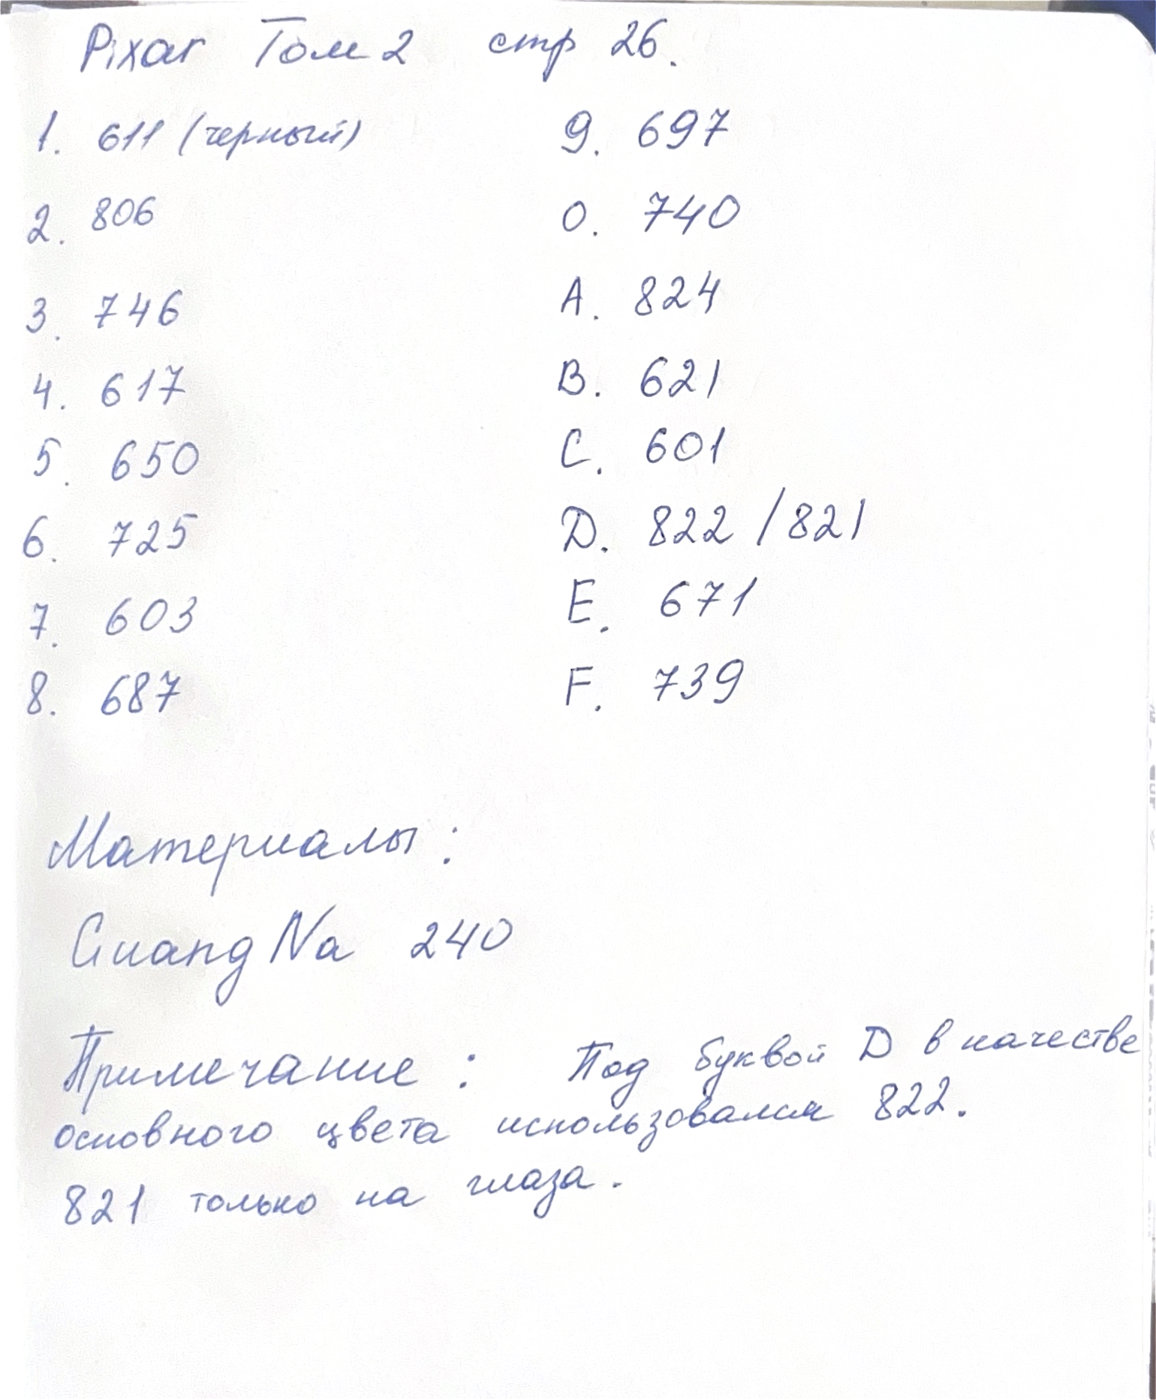 Pixar Том 2 стр 26.
1. 611 (черный)
2. 806
3. 746
4. 617
5. 650
6. 725
7. 603
8. 687
9. 697
0. 740
A. 824
B. 621
C. 601
D. 822 / 821
E. 671
F. 739
Материалы:
Guang Na 240
Примечание: Под буквой D в качестве
основного цвета использовался 822.
821 только на глаза.